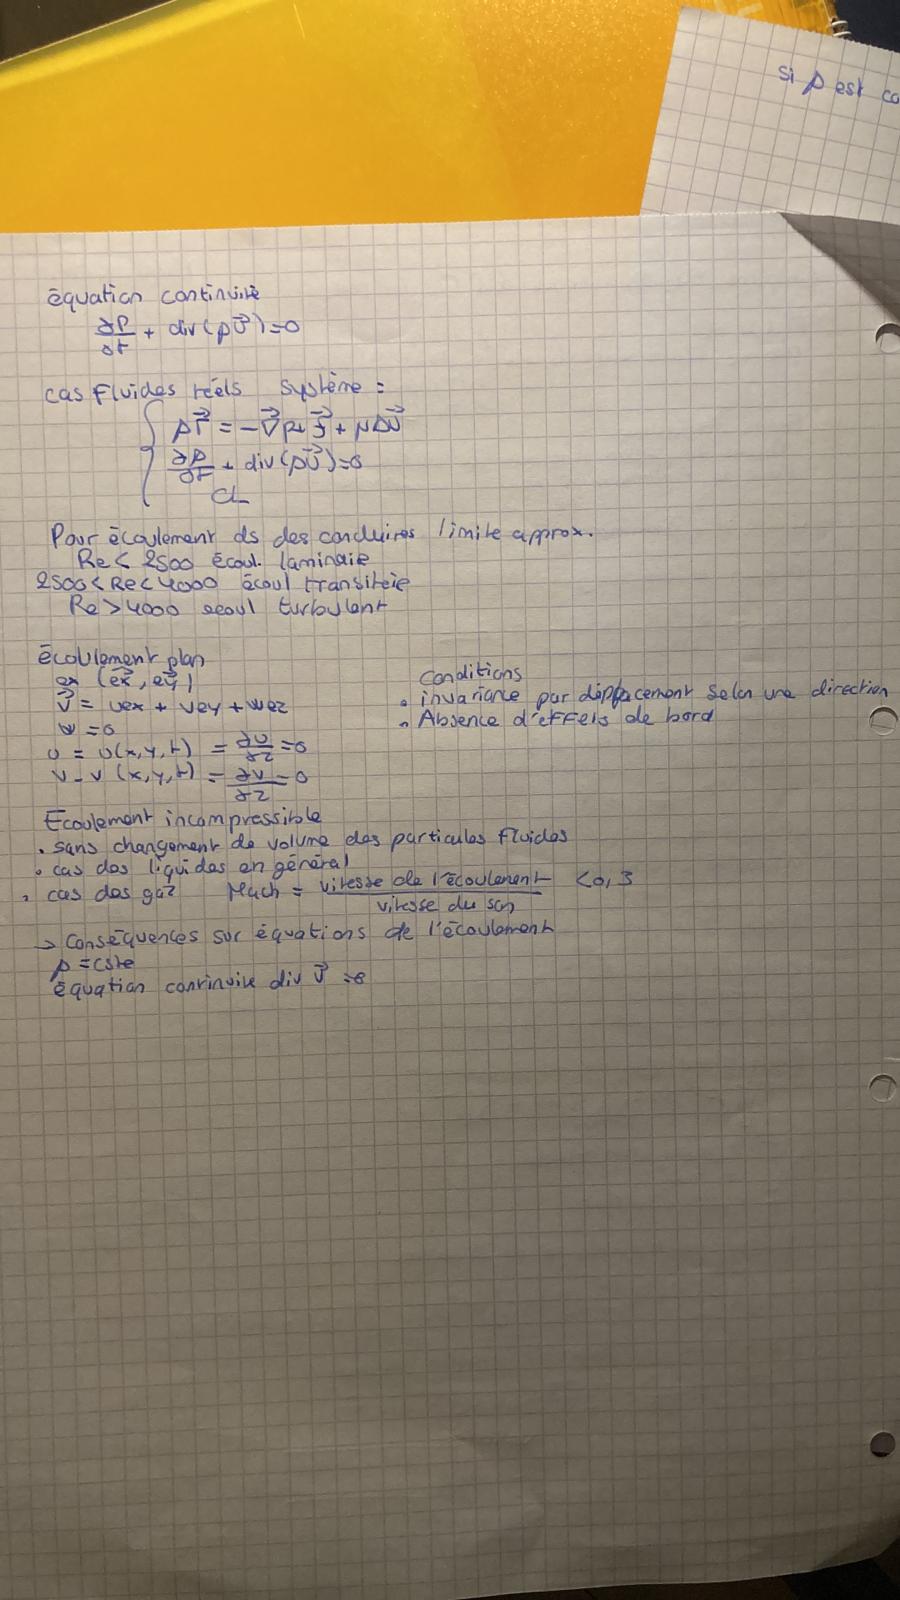 si ρ est co
équation continuité
∂ρ/∂t + div(ρU⃗)=0
cas Fluides réels système :
ρΓ⃗ = -∇⃗p + f⃗ + μΔU⃗
∂ρ/∂t + div(ρU⃗)=0
CL
Pour écoulement ds des conduires limite approx.
Re < 2500 écoul. laminaie
2500 < Re < 4000 écoul transiteie
Re > 4000 ecoul turbulent
écoulement plan
ex (ex⃗, ey⃗)
V⃗ = uex + vey + wez
w = 0
u = u(x,y,t) = ∂u/∂z = 0
v = v(x,y,t) = ∂v/∂z = 0
conditions
• invariance par déplacement selon une direction
• Absence d'effets de bord
Ecoulement incompressible
• sans changement de volume des particules fluides
• cas des liquides en général
• cas des gaz Mach = vitesse de l'écoulement / vitesse du son < 0,3
→ Conséquences sur équations de l'écoulement
ρ = cste
équation continuité div U⃗ = 0